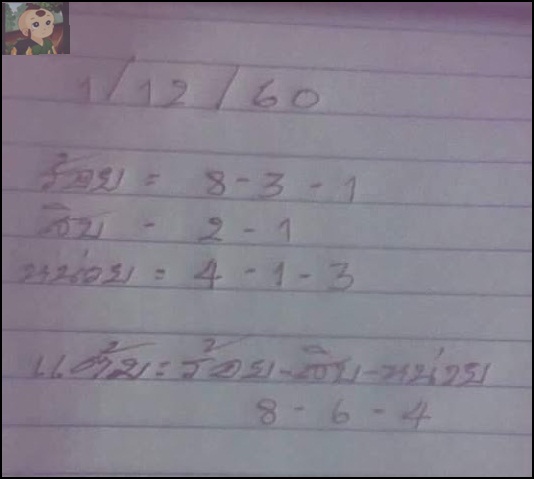 1/12/60
ร้อย = 8-3-1
สิบ - 2-1
หน่วย = 4-1-3
ร้อย-สิบ-หน่วย
8-6-4